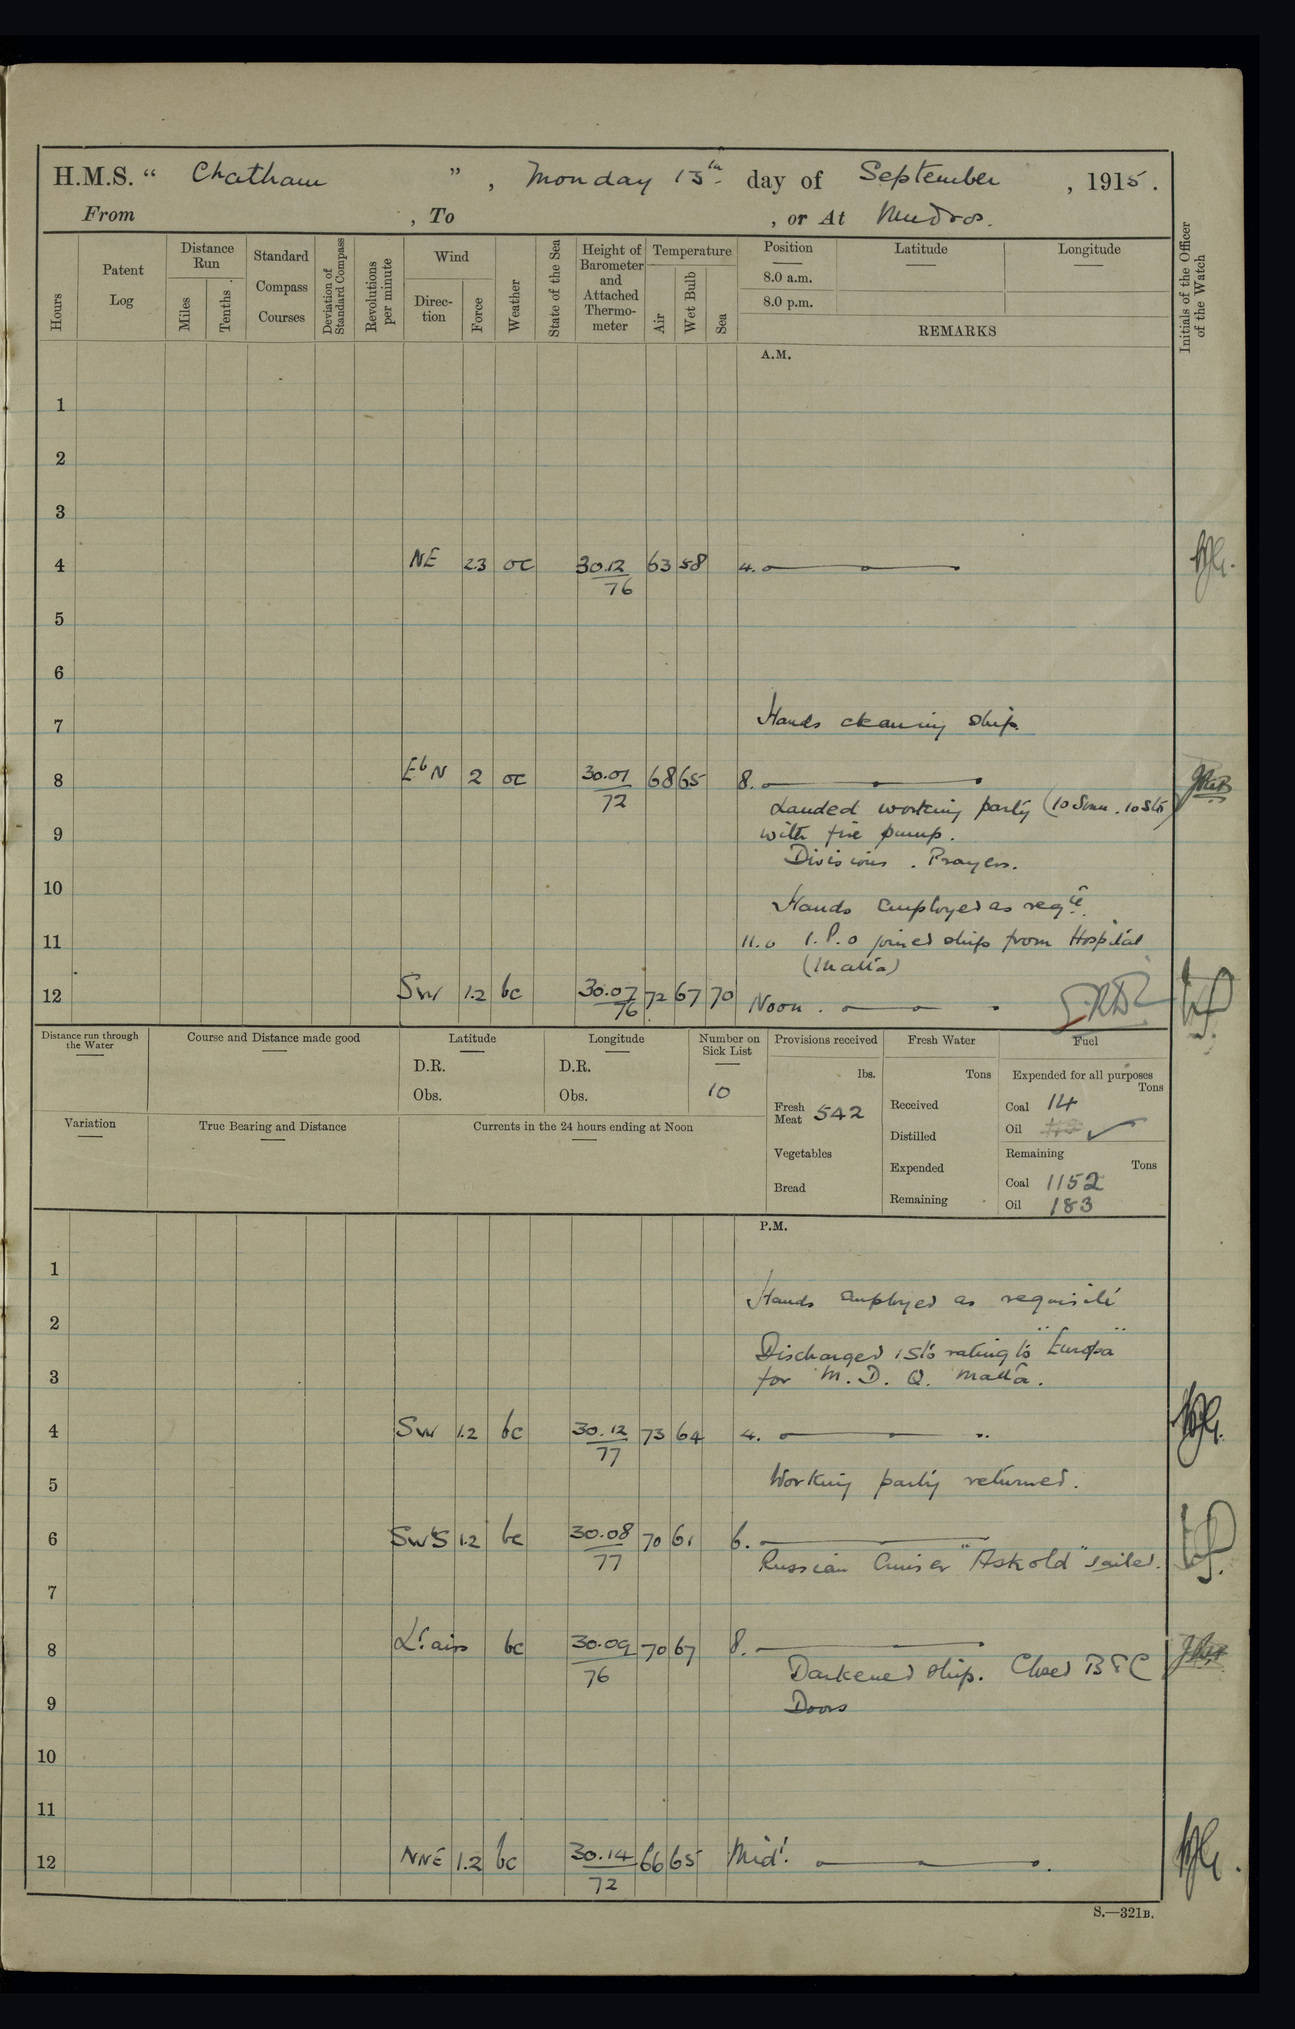 H.M.S. “ Chatham ”, Monday 13th day of September, 1915.
From , To , or At Mudros.
Hours
Patent Log
Distance Run
Miles
Tenths
Standard Compass Courses
Deviation of Standard Compass
Revolutions per minute
Wind
Direc-tion
Force
Weather
State of the Sea
Height of Barometer and Attached Thermo-meter
Temperature
Air
Wet Bulb
Sea
Position
8.0 a.m.
8.0 p.m.
Latitude
Longitude
REMARKS
Initials of the Officer of the Watch
A.M.
1
2
3
4 NE 2.3 oc 30.12/76 63 58 4.
5
6
7 Hands cleaning ship.
8 EbN 2 oc 30.01/72 68 65 8.
Landed working party (10 Smn. 10 Sto)
9 with fire pump.
Divisions. Prayers.
10 Hands employed as reqte.
11 11.0 1. P.O joined ship from Hospital
(Malta)
12 SW 1.2 bc 30.07/76 72 67 70 Noon.
Distance run through the Water
Course and Distance made good
Latitude
D.R.
Obs.
Longitude
D.R.
Obs.
Number on Sick List
10
Provisions received
lbs.
Fresh Meat 542
Vegetables
Bread
Fresh Water
Tons
Received
Distilled
Expended
Remaining
Fuel
Expended for all purposes
Tons
Coal 14
Oil
Remaining
Tons
Coal 1152
Oil 183
Variation
True Bearing and Distance
Currents in the 24 hours ending at Noon
P.M.
1
Hands employed as requisite
2
Discharged 1 Sto rating to "Europa"
3 for M. D. Q. Malta.
4 SW 1.2 bc 30.12/77 73 64 4.
5 Working party returned.
6 SWbS 1.2 bc 30.08/77 70 61 6.
Russian Cruiser "Askold" sailed.
7
8 Lt airs bc 30.09/76 70 67 8.
Darkened ship. Closed B & C
9 Doors
10
11
12 NNE 1.2 bc 30.14/72 66 65 Midt.
S.—321B.